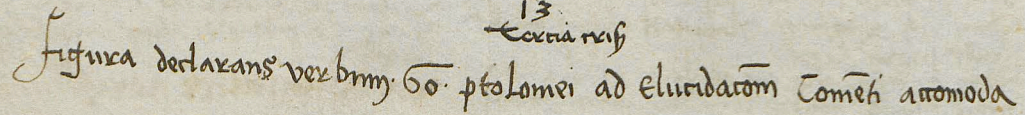 13
Tertia cris̃
Figura declarans verbum 60. ptolomei ad Elucidacōm Comēti accomoda